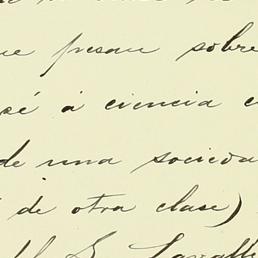 ue pesan sobre
sé á ciencia c
de una socieda
de otra clase)